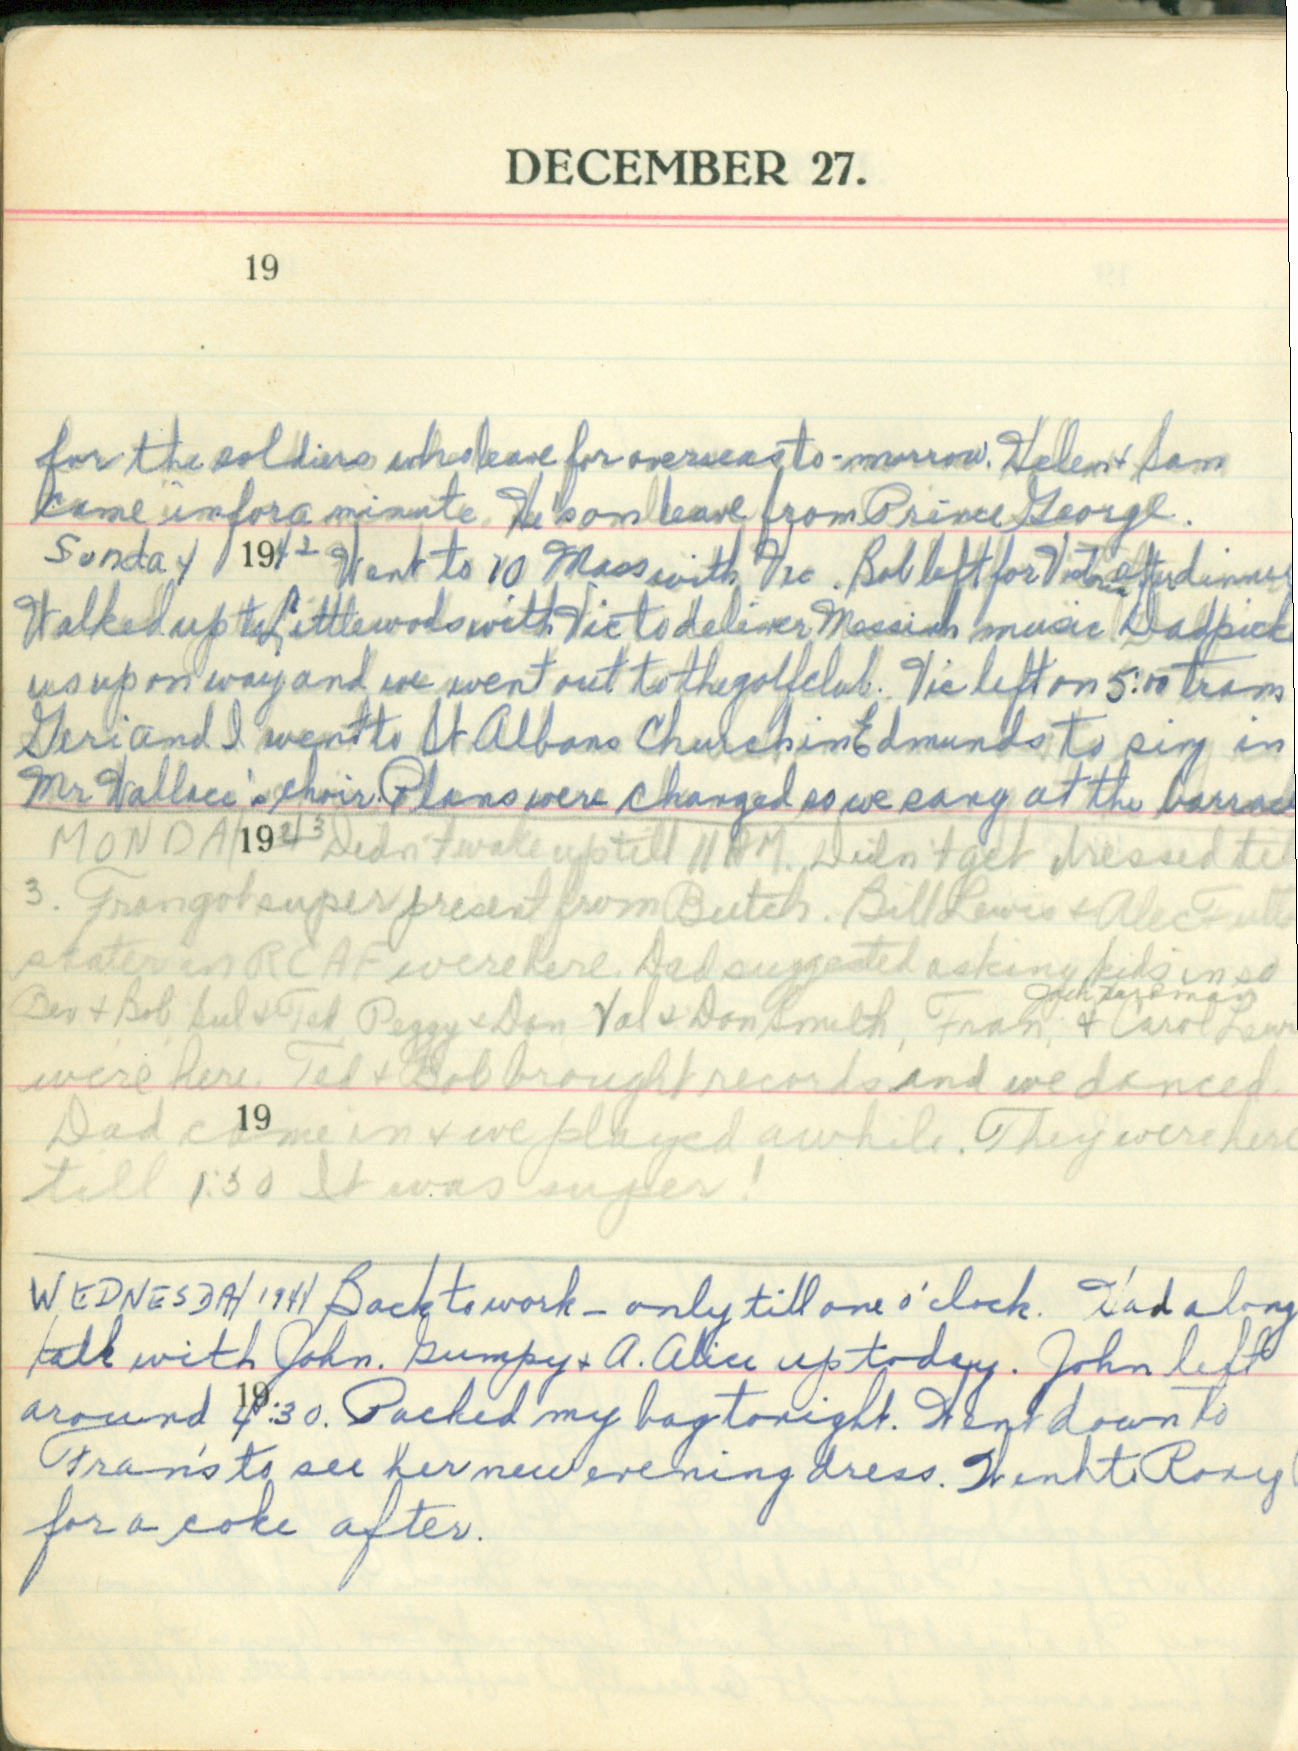 DECEMBER 27.
19
for the soldiers who leave for overseas to-morrow. Helen & Sam
came in for a minute. He's on leave from Prince George.
Sunday 1942 Went to 10 Mass with Vic. Bob left for Victoria after dinner
Walked up to Littlewoods with Vic to deliver Messiah music. Dad pick
us up on way and we went out to the golf club. Vic left on 5:00 tram
Geri and I went to St Albans Church in Edmunds to sing in
Mr Wallace's choir. Plans were changed so we sang at the barrac
MONDAY 1943 Didn't wake up till 11 AM. Didn't get dressed till
3. Fran got super present from Butch. Bill Lewis & Alec
skater in RCAF were here. Dad suggested asking kids in so
Bev & Bob, & Ted Peggy & Don Val & Don Smith, Fran, Jack & Carol Lewi
were here. Ted & Bob brought records and we danced
19
Dad came in & we played awhile. They were here
till 1:30 It was super!
WEDNESDAY 1944 Back to work - only till one o'clock. Had a long
talk with John. Gumpy & A. Alice up today. John left
19
around 4:30. Packed my bag tonight. Went down to
Fran's to see her new evening dress. Went to Roxy
for a coke after.